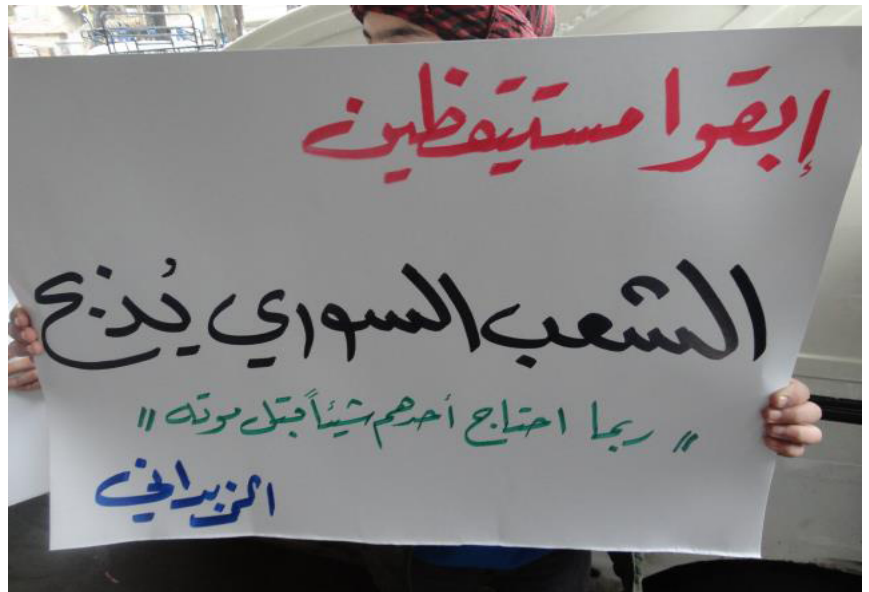 إبقوا مستيقظين
الشعب السوري يُذبح
" ربما احتاج أحدهم شيئاً قبل موته "
الزبداني